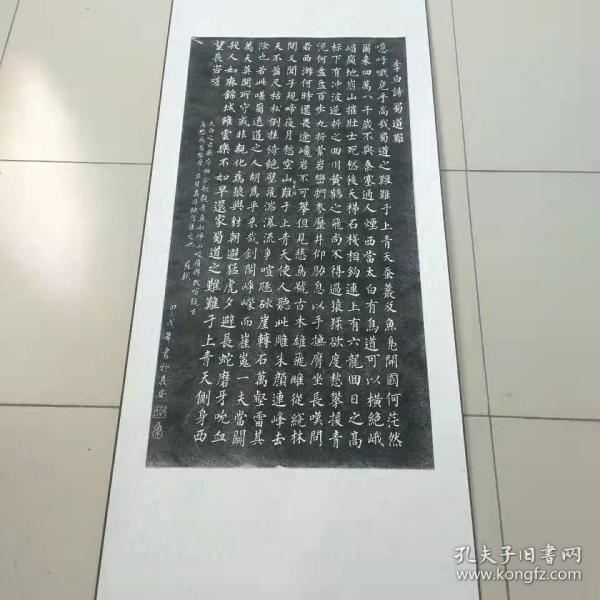 李白詩蜀道難
噫吁戲危乎高哉蜀道之難難于上青天蚕叢及魚鳧開國何茫然
爾来四萬八千歲不與秦塞通人煙西當太白有鳥道可以橫絶峨
嵋巔地崩山摧壯士死然後天梯石棧相鈎連上有六龍回日之高
標下有冲波逆折之回川黃鶴之飛尚不得過猿猱欲度愁攀援青
泥何盘盘百步九折縈岩巒捫參歷井仰胁息以手撫膺坐長嘆問
君西游何時還畏途巉岩不可攀但見悲鳥號古木雄飛雌從繞林
間又聞子規啼夜月愁空山難于上青天使人聽此雕朱顔連峰去
天不盈尺枯松倒挂倚絶壁飛湍瀑流爭喧豗砯崖轉石萬壑雷其
險也若此嗟尔遠道之人胡爲乎来哉劍閣崢嶸而崔嵬一夫當關
萬夫莫開所守或非親化為狼與豺朝避猛虎夕避長蛇磨牙吮血
殺人如麻錦城雖雲樂不如早還家蜀道之難難于上青天側身西
望長咨嗟
孔夫子旧書网
www.kongfz.com